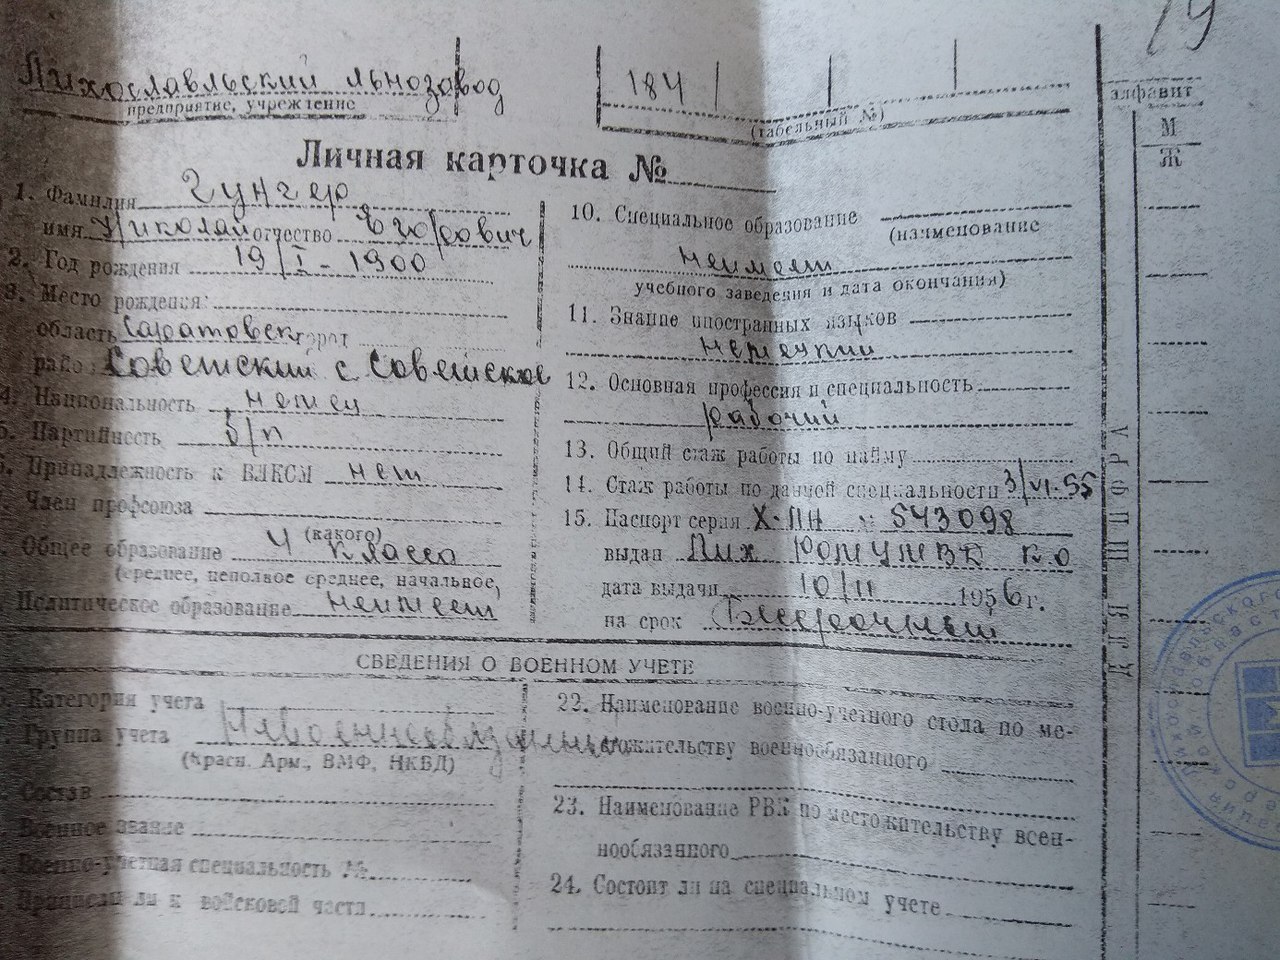 Лихославльский льнозавод
предприятие, учреждение
184
(табельный №)
Личная карточка №
1. Фамилия Гунгер
имя Николай отчество Егорович
2. Год рождения 19/I - 1900
3. Место рождения:
область Саратовск город
район Советский с Советское
4. Национальность немец
5. Партийность б/п
6. Принадлежность к ВЛКСМ нет
Член профсоюза
(какого)
Общее образование 4 класса
(среднее, неполное среднее, начальное,
Политическое образование неимеет
10. Специальное образование
(наименование
неимеет
учебного заведения и дата окончания)
11. Знание иностранных языков
немецкий
12. Основная профессия и специальность
рабочий
13. Общий стаж работы по найму
14. Стаж работы по данной специальности 3/VI-55
15. Паспорт серия X-ПН № 543098
выдан Лих К О
дата выдачи 10/II 1956 г.
на срок Бессрочный
алфавит
М
Ж
СВЕДЕНИЯ О ВОЕННОМ УЧЕТЕ
Категория учета
Группа учета Невоеннообязанный
(Красн. Арм., ВМФ, НКВД)
Состав
Военное звание
Военно-учетная специальность №
Приписан ли к войсковой части
22. Наименование военно-учетного стола по ме-
стожительству военнообязанного
23. Наименование РВК по местожительству воен-
нообязанного
24. Состоит ли на специальном учете